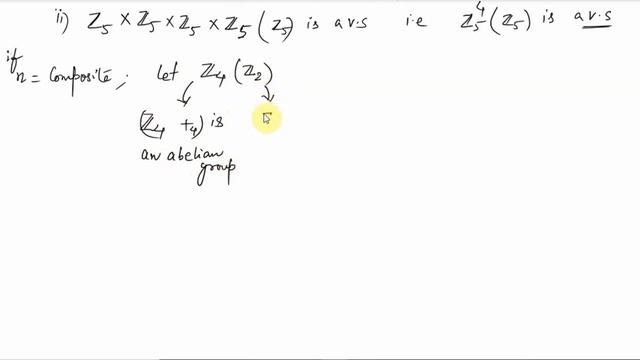 ii) ℤ₅ × ℤ₅ × ℤ₅ × ℤ₅ (ℤ₅) is a v.s i.e ℤ₅⁴ (ℤ₅) is a v.s
if n = Composite, let ℤ₄ (ℤ₂)
(ℤ₄ +₄) is
an abelian
group